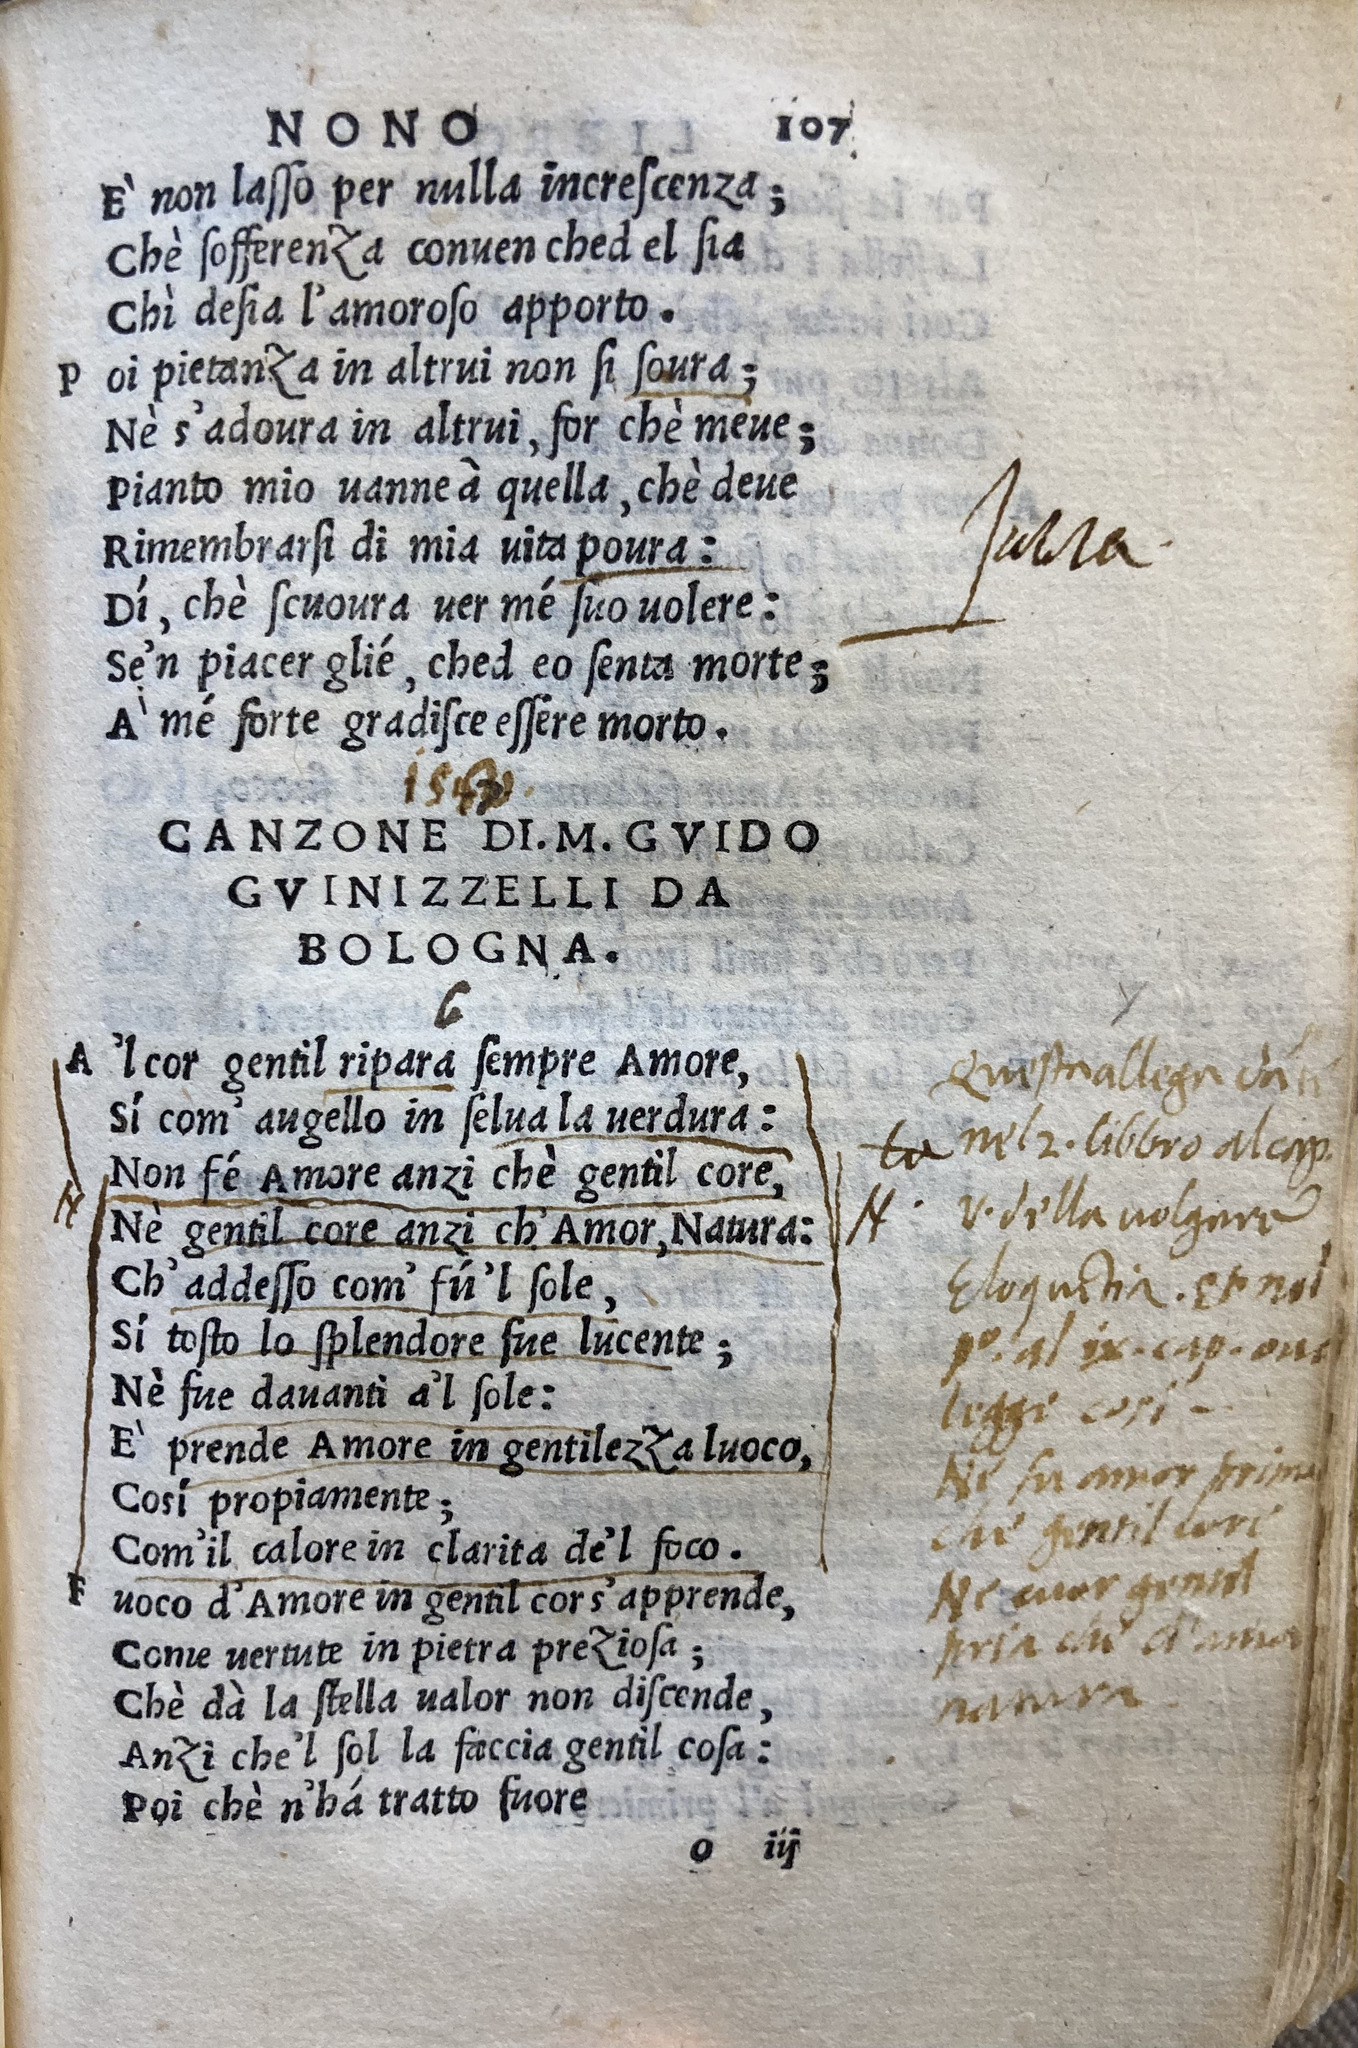 NONO 107
E' non lasso per nulla increscenza;
Chè sofferenza conuen ched el sia
Chì desia l'amoroso apporto.
Poi pietanza in altrui non si soura;
Nè s'adoura in altrui, for chè meue;
Pianto mio uanne à quella, chè deue
Rimembrarsi di mia uita poura:
Dí, chè scuoura uer mé suo uolere:
Se'n piacer glié, ched eo senta morte;
A' mé forte gradisce essere morto.
CANZONE DI.M.GVIDO
GVINIZZELLI DA
BOLOGNA.
6
A'l cor gentil ripara sempre Amore,
Sí com' augello in selua la uerdura:
Non fé Amore anzi chè gentil core,
Nè gentil core anzi ch'Amor, Natura:
Ch'addesso com' fú'l sole,
Sí tosto lo splendore fue lucente;
Nè fue dauanti a'l sole:
E' prende Amore in gentilezza luoco,
Cosí propiamente;
Com'il calore in clarita de'l foco.
Fuoco d'Amore in gentil cor s'apprende,
Come uertute in pietra preziosa;
Chè dà la stella ualor non discende,
Anzi che'l sol la faccia gentil cosa:
Poi chè n'há tratto fuore
o iij
Questa allega
nel 2. libbro al cap.
v. della uolgare
Eloquētia. et nel
pº. al ix. cap. oue
legge cosi
Ne fu amor prima
che gentil core
Ne cuor gentil
pria che d'amor
natura